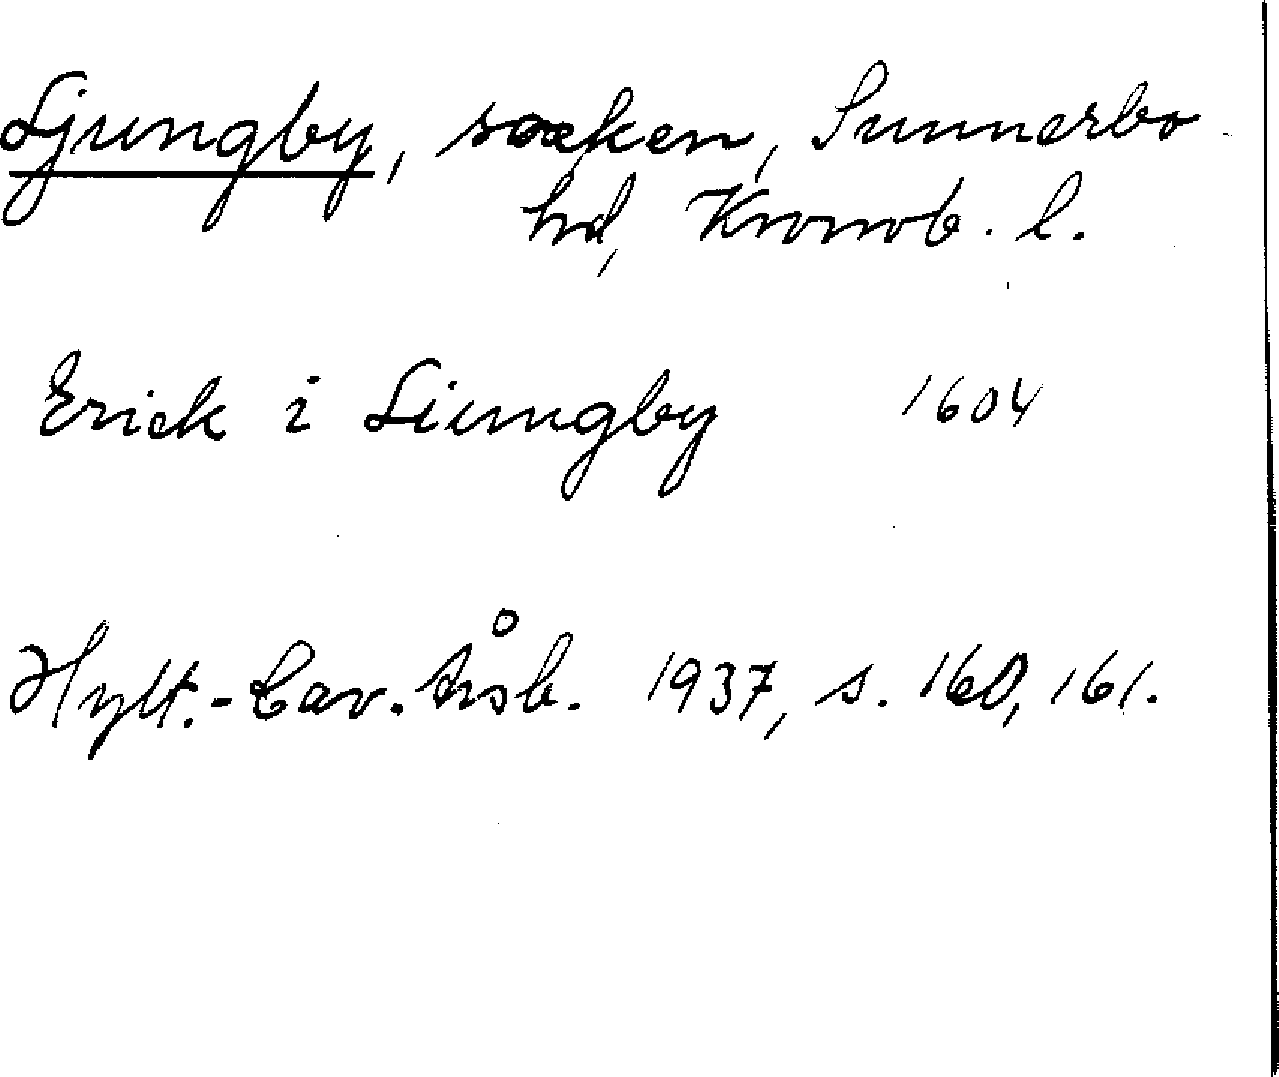 Ljungby, socken, Sunnerbo
hd, Kronob. l.
Erick i Liungby 1604
Hylt.-Cav. årsb. 1937, s. 160, 161.